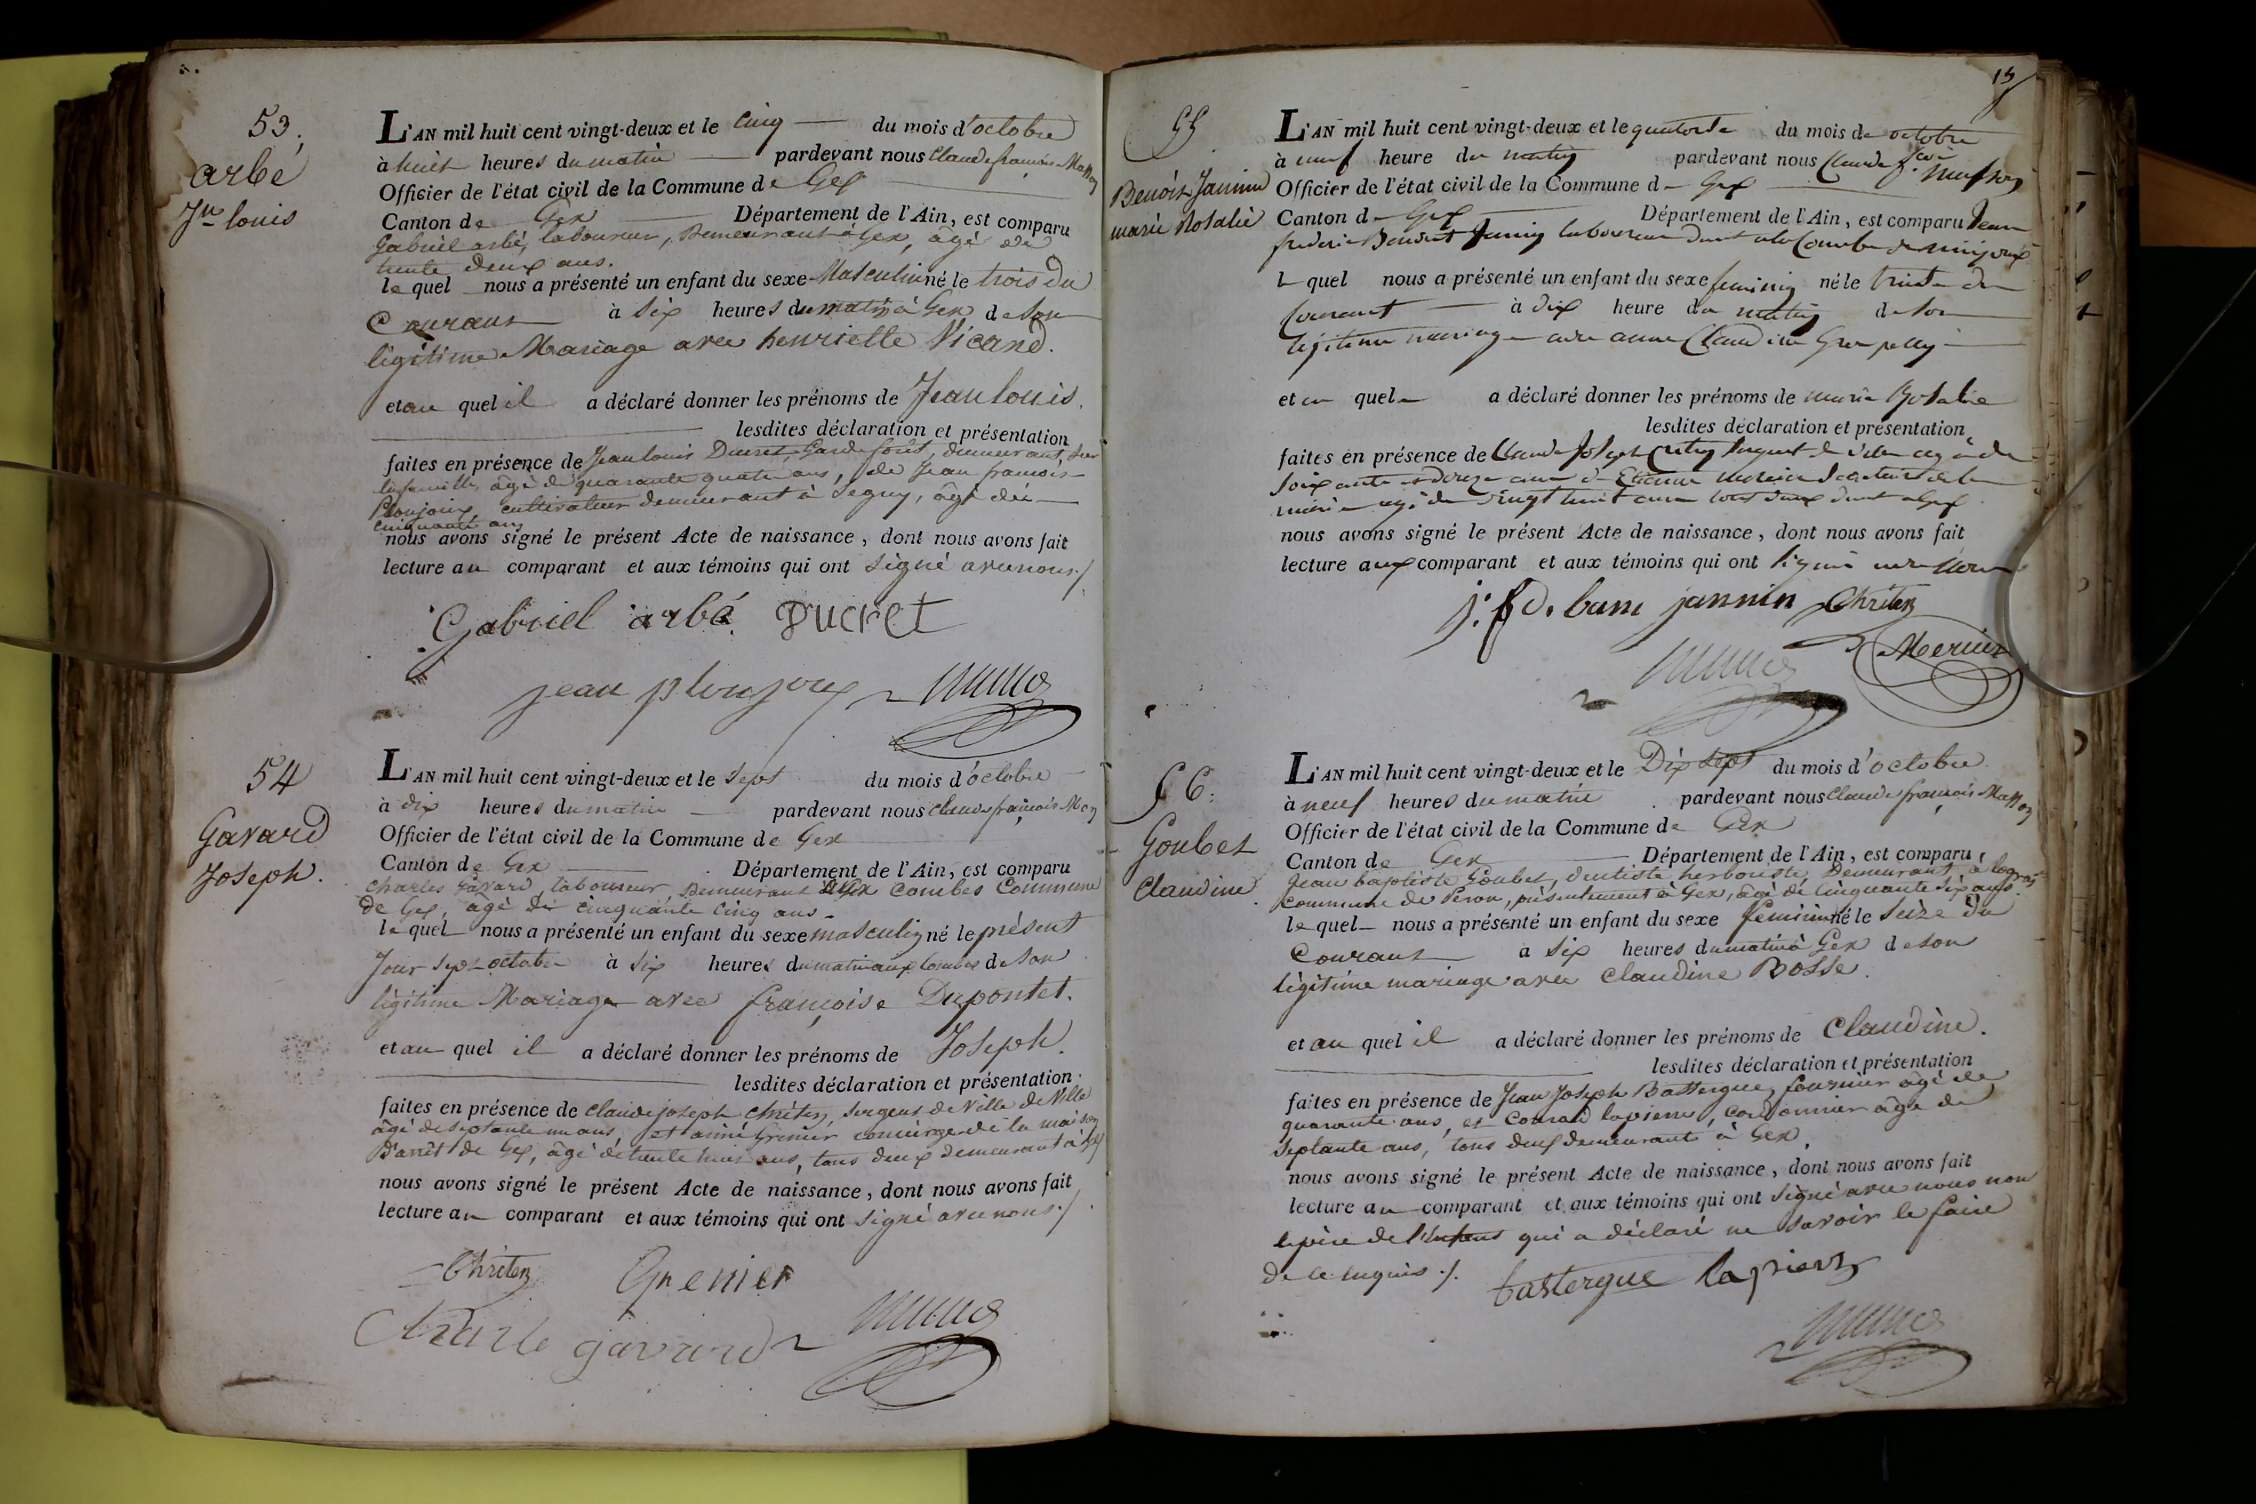 53.
arbé
Jn louis
L'AN mil huit cent vingt-deux et le cinq du mois d'octobre
à huit heures du matin pardevant nous Claude françois Masson
Officier de l'état civil de la Commune de Gex
Canton de Gex Département de l'Ain, est comparu
Gabriel arbé, laboureur, Demeurant à Gex, âgé de
trente deux ans.
le quel nous a présenté un enfant du sexe Masculin né le trois du
Courant à six heures du matin à Gex de son
légitime Mariage avec henriette Vicand.
et au quel il a déclaré donner les prénoms de Jean louis.
lesdites déclaration et présentation
faites en présence de Jean louis Ducret, Garde forêt, demeurant sur
âgé de quarante quatre ans, de Jean françois
Ploujoux, cultivateur demeurant à Segny, âgé de
cinquante ans
nous avons signé le présent Acte de naissance, dont nous avons fait
lecture au comparant et aux témoins qui ont signé avec nous ./
Gabriel arbé Ducret
jean ploujoux
54
Gavard
Joseph.
L'AN mil huit cent vingt-deux et le sept du mois d'octobre
à dix heures du matin pardevant nous Claude françois Mason
Officier de l'état civil de la Commune de Gex
Canton de Gex Département de l'Ain, est comparu
Charles Gavard, laboureur, Demeurant aux Combes Commune
de Gex, âgé de cinquante cinq ans
le quel nous a présenté un enfant du sexe masculin né le présent
Jour sept octobre à six heures du matin aux Combes de son
légitime Mariage avec françoise Dupontet.
et au quel il a déclaré donner les prénoms de Joseph.
lesdites déclaration et présentation
faites en présence de Claude joseph Chrêten, sergent de Ville de Ville
âgé de septante un ans, et aimé Grenier concierge de la maison
D'arrêt de Gex, âgé de trente huit ans, tous deux demeurant à Gex
nous avons signé le présent Acte de naissance, dont nous avons fait
lecture au comparant et aux témoins qui ont signé avec nous ./.
Chrêten Grenier
Charle gavard
19
55
Benoit Jannin
marie Rosalie
L'AN mil huit cent vingt-deux et le quatorze du mois de octobre
à neuf heure du matin pardevant nous Claude fçois Masson
Officier de l'état civil de la Commune d Gex
Canton d Gex Département de l'Ain, est comparu Jean
frederic Benoit Jannin laboureur dmt a la Combe de mijoux
l quel nous a présenté un enfant du sexe feminin né le treize du
Courant à dix heure du matin de son
légitime mariage avec anne Claudine Grospelly
et au quel a déclaré donner les prénoms de marie Rosalie
lesdites déclaration et présentation
faites en présence de Claude Joseph Cretin sergent de ville agé de
soixante et douze ans d Etienne mercier Secretaire de la
mairie agé de vingt huit ans tous deux dmt a Gex
nous avons signé le présent Acte de naissance, dont nous avons fait
lecture aux comparant et aux témoins qui ont signé avec nous
j. f. d. bene jannin Chrêten
Mercier
56.
Goubet
Claudine.
L'AN mil huit cent vingt-deux et le Dix sept du mois d'octobre
à neuf heures du matin pardevant nous Claude françois Masson
Officier de l'état civil de la Commune de Gex
Canton de Gex Département de l'Ain, est comparu
Jean baptiste Goubet, dentiste herboriste, Demeurant à logras
commune de Peron, présentement à Gex, âgé de Cinquante six ans.
le quel nous a présenté un enfant du sexe feminin né le seize du
Courant à six heures du matin à Gex de son
légitime mariage avec Claudine Bosse.
et au quel il a déclaré donner les prénoms de Claudine.
lesdites déclaration et présentation
faites en présence de Jean Joseph Bastergue, fournier âgé de
quarante ans, et Conrad lapierre, cordonnier âgé de
septante ans, tous deux demeurant à Gex.
nous avons signé le présent Acte de naissance, dont nous avons fait
lecture au comparant et aux témoins qui ont signé avec nous non
le père de l'enfant qui a déclaré ne savoir le faire
de ce enquis ./.
bastergue lapierre